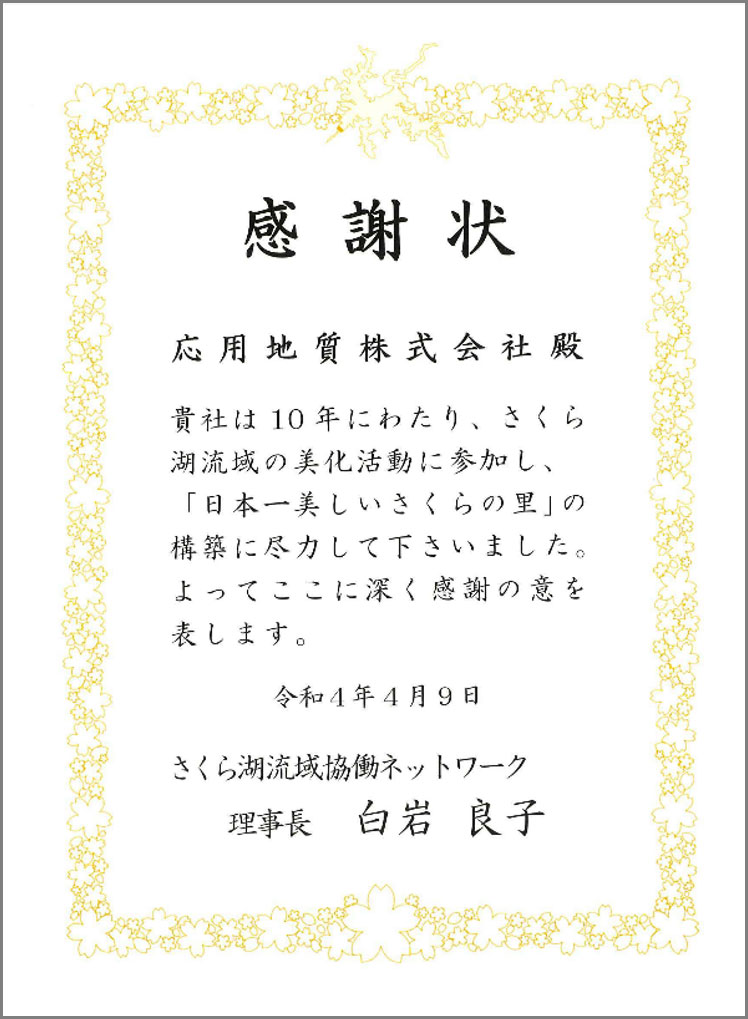 感謝状
応用地質株式会社殿
貴社は10年にわたり、さくら
湖流域の美化活動に参加し、
「日本一美しいさくらの里」の
構築に尽力して下さいました。
よってここに深く感謝の意を
表します。
令和4年4月9日
さくら湖流域協働ネットワーク
理事長 白岩 良子